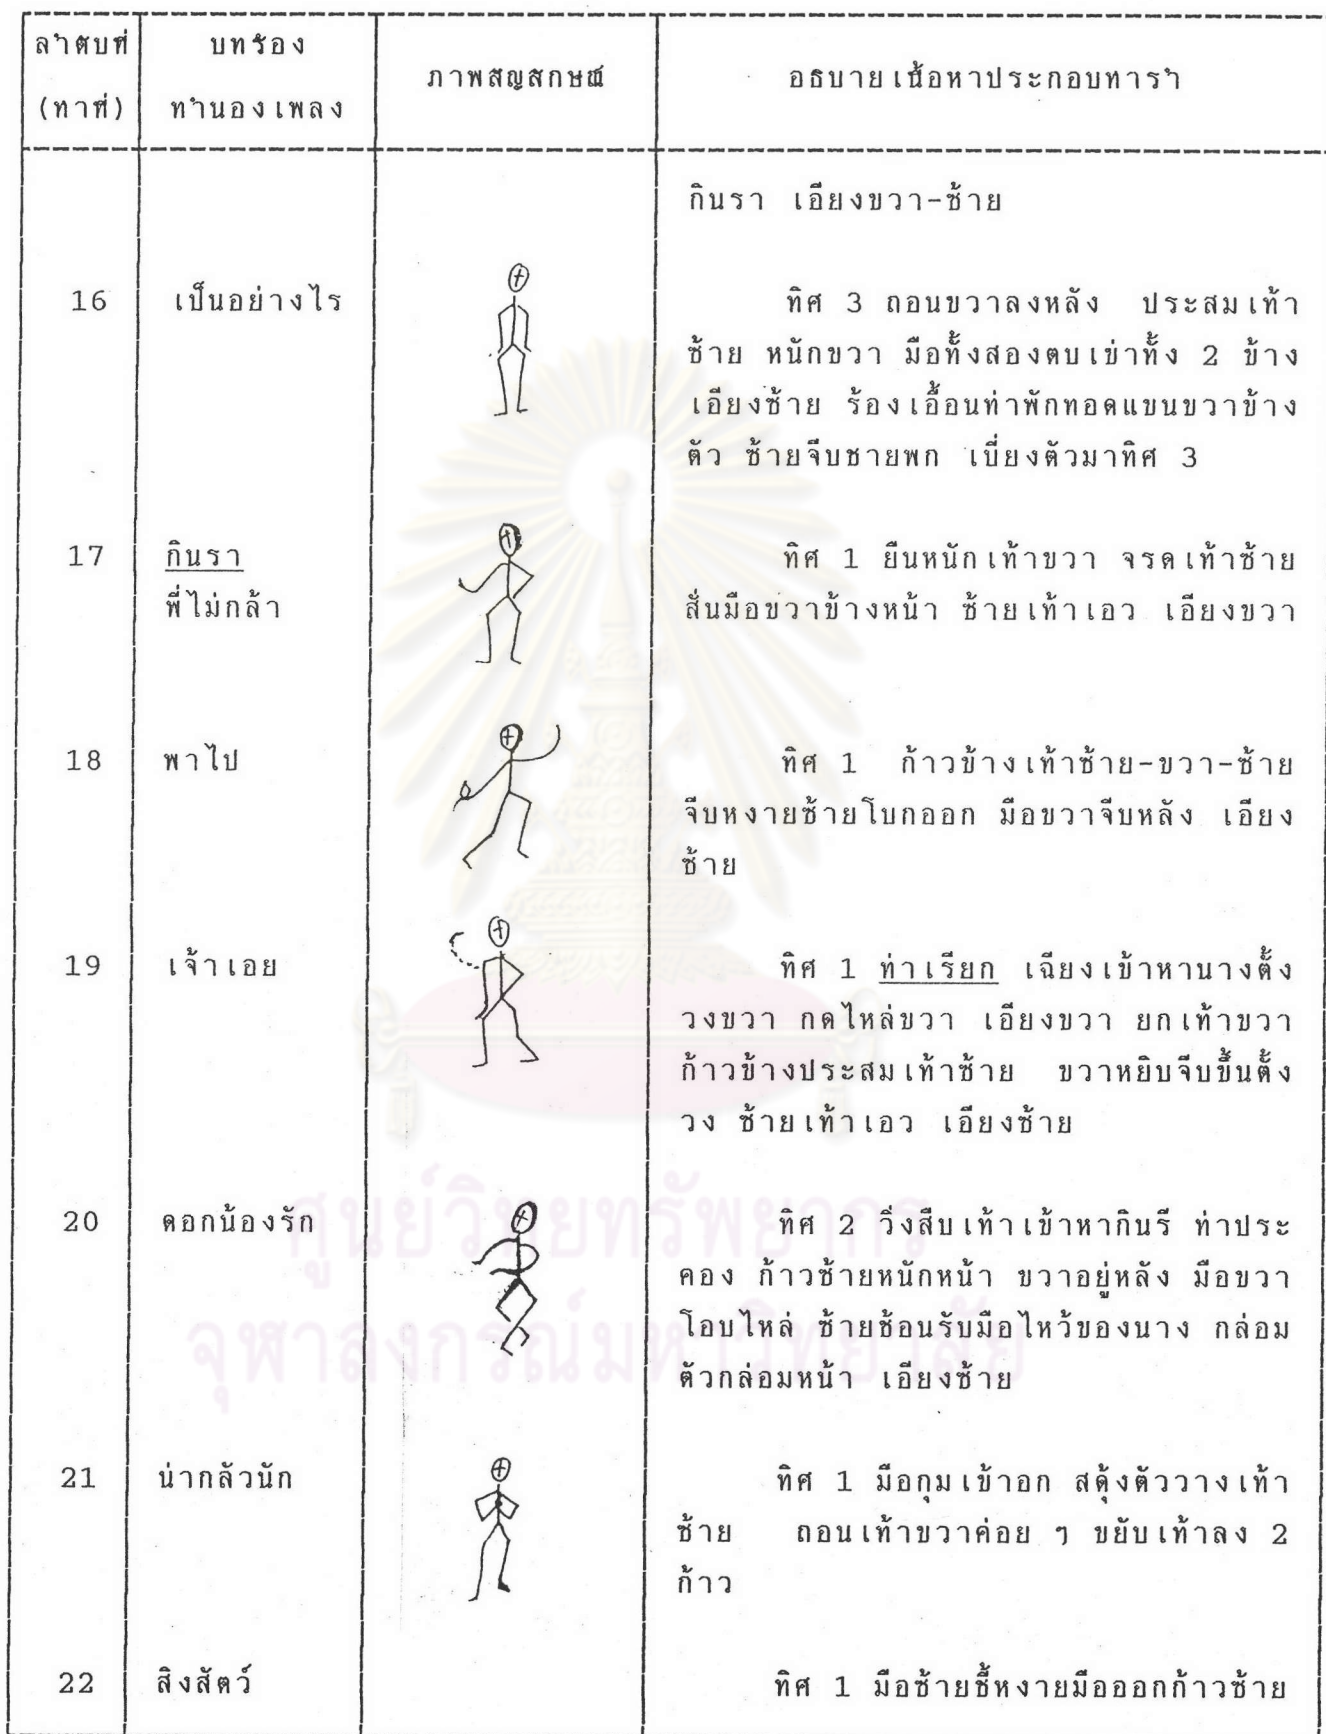 ลำดับที่ บทร้อง ภาพสัญลักษณ์ อธิบายเนื้อหาประกอบท่ารำ
(ท่าที่) ทำนองเพลง
กินรา เอียงขวา-ซ้าย
16 เป็นอย่างไร ทิศ 3 ถอนขวาลงหลัง ประสมเท้า
ซ้าย หนักขวา มือทั้งสองตบเข่าทั้ง 2 ข้าง
เอียงซ้าย ร้องเอื้อนท่าพักทอดแขนขวาข้าง
ตัว ซ้ายจีบชายพก เบี่ยงตัวมาทิศ 3
17 กินรา ทิศ 1 ยืนหนักเท้าขวา จรดเท้าซ้าย
พี่ไม่กล้า สั่นมือขวาข้างหน้า ซ้ายเท้าเอว เอียงขวา
18 พาไป ทิศ 1 ก้าวข้างเท้าซ้าย-ขวา-ซ้าย
จีบหงายซ้ายโบกออก มือขวาจีบหลัง เอียง
ซ้าย
19 เจ้าเอย ทิศ 1 ท่าเรียก เฉียงเข้าหานางตั้ง
วงขวา กดไหล่ขวา เอียงขวา ยกเท้าขวา
ก้าวข้างประสมเท้าซ้าย ขวาหยิบจีบขึ้นตั้ง
วง ซ้ายเท้าเอว เอียงซ้าย
20 ดอกน้องรัก ทิศ 2 วิ่งสืบเท้าเข้าหากินรี ท่าประ
คอง ก้าวซ้ายหนักหน้า ขวาอยู่หลัง มือขวา
โอบไหล่ ซ้ายช้อนรับมือไหว้ของนาง กล่อม
ตัวกล่อมหน้า เอียงซ้าย
21 น่ากลัวนัก ทิศ 1 มือกุมเข้าอก สดุ้งตัววางเท้า
ซ้าย ถอนเท้าขวาค่อย ๆ ขยับเท้าลง 2
ก้าว
22 สิงสัตว์ ทิศ 1 มือซ้ายชี้หงายมือออกก้าวซ้าย
ศูนย์วิทยทรัพยากร
จุฬาลงกรณ์มหาวิทยาลัย